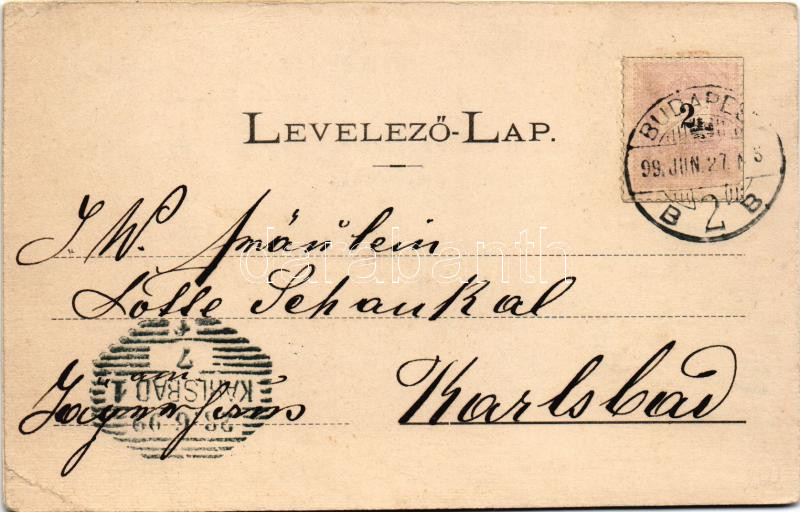 LEVELEZŐ-LAP.
2
BUDAPES
99. JUN. 27. N 8
B 2 B
I.W. Fräulein
Lotte Schaukal
Karlsbad
7
KARLSBAD 1
28·6·99
darabanth